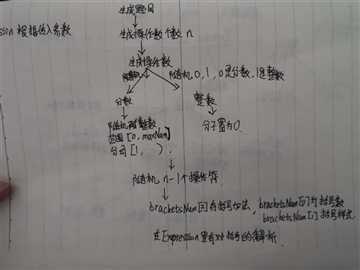 生成题目
ssion 根据传入参数
生成操作数个数 n
生成操作数
随机 0, 1, 0是分数, 1是整数
分数
整数
随机两整数
范围 [0, maxNum]
分母 [1, ).
分子置为0.
随机 n-1个操作符
bracketsNum[]
bracketsNum[0]为括号数
bracketsNum[1]括号样式
在Expression里有对括号的解析.